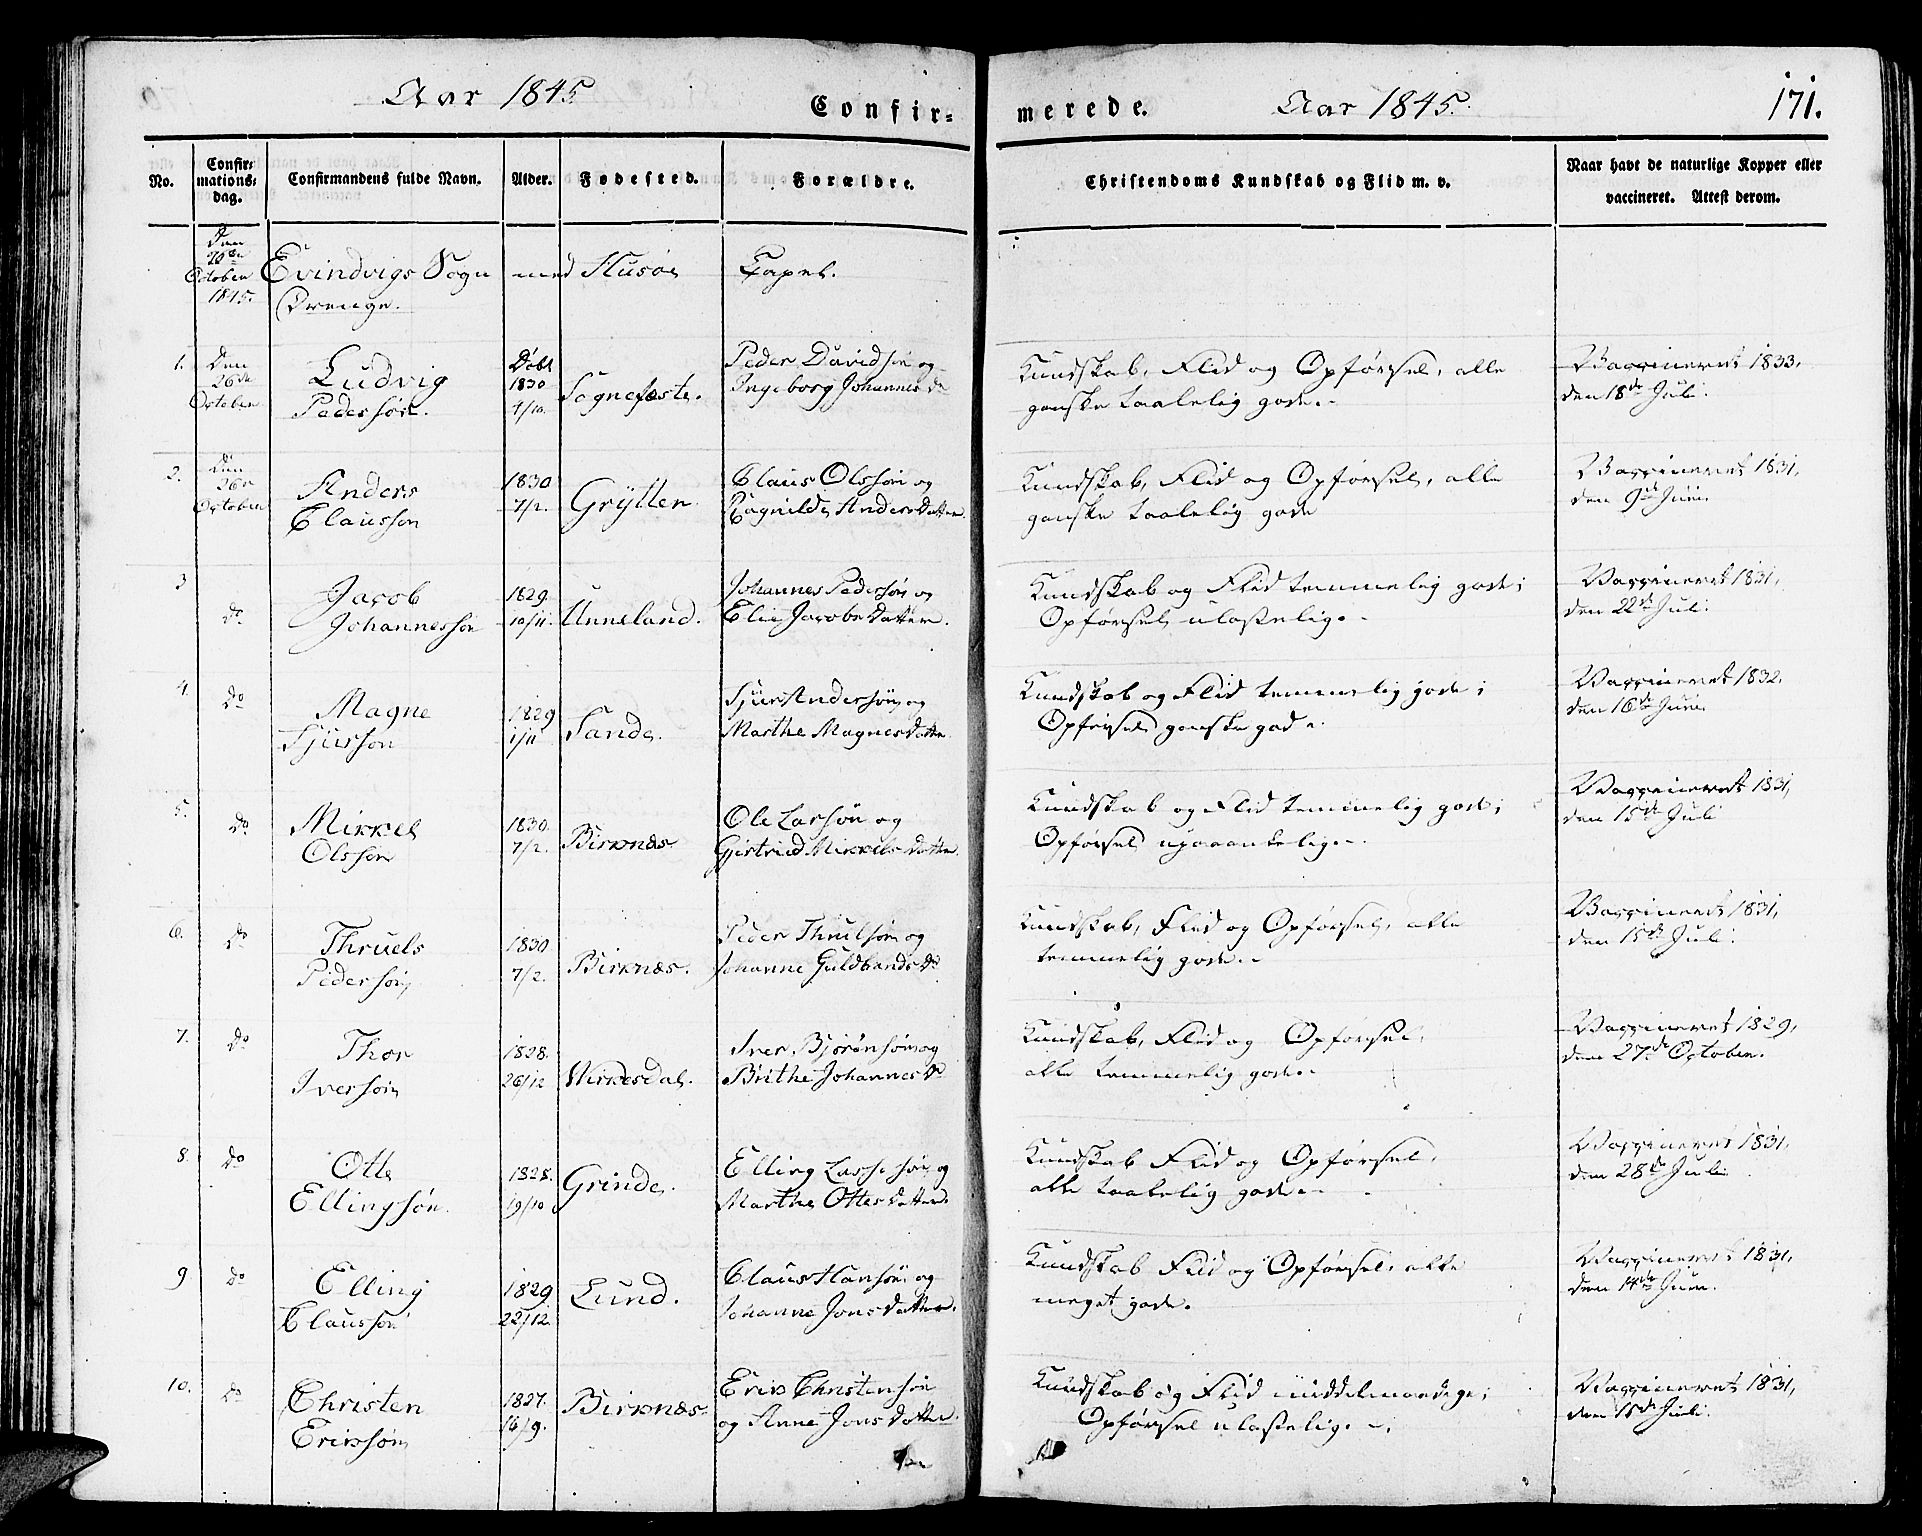 Aar 1845
Confir-
merede.
Aar 1845.
171.
No.
Confir-
mations-
dag.
Confirmandens fulde Navn.
Alder.
Fødested.
Forældre.
Christendoms Kundskab og Flid m. v.
Naar havt de naturlige Kopper eller
vaccineret. Attest derom.
Den
October
1845.
Evindvigs Sogn med Husøe Capel.
Drenge.
1. Den
26de
October
Ludvig
Pedersøn.
Døbt
1830
4/10.
Sognefæste.
Peder Davidsøn og
Ingeborg Johannes D.
Kundskab, Flid og Opførsel, alle
ganske taalelig gode.
Vaccineret 1833,
den 18de Juli.
2. Den
26de
October
Anders
Claussøn
1830
7/2.
Grytten
Claus Olssøn og
Ragnilde Anders Datter.
Kundskab, Flid og Opførsel, alle
ganske taalelig gode
Vaccineret 1831,
den 9de Juni.
3 Do
Jacob
Johannessøn
1829
10/11.
Unneland.
Johannes Pedersøn og
Elie Jacobs Datter.
Kundskab og Flid temmelig gode;
Opførsel ulastelig.
Vaccineret 1831,
den 22de Juli.
4. Do
Magne
Sjurssøn
1829
1/11
Sande.
Sjur Andersøn og
Marthe Magnes Datter
Kundskab og Flid temmelig gode;
Opførsel ganske god.
Vaccineret 1832.
den 16de Juni
5. Do
Mikkel
Olssøn
1830.
7/2.
Birknæs
Ole Larsøn og
Gjertrud Mikkels Datter.
Kundskab og Flid temmelig gode;
Opførsel upaaankelig.
Vaccineret 1831,
den 15de Juli
6. Do
Thruels
Pedersøn
1830
7/2.
Birknæs.
Peder Thrulsøn og
Johanne Guldbrands D.
Kundskab, Flid og Opførsel, alle
temmelig gode.
Vaccineret 1831,
den 15de Juli.
7. Do
Thor
Iversøn
1828.
26/12
Wirkesdal.
Iver Bjørønsøn og
Brithe Johannes D.
Kundskab, Flid og Opførsel,
alle temmelig gode.
Vaccineret 1829,
den 27de October.
8. Do
Otte
Ellingsøn.
1828.
19/10
Grinde.
Elling Lassesøn og
Marthe Ottes Datter.
Kundskab Flid og Opførsel,
alle taalelig gode.
Vaccineret 1831,
den 28de Juli
9 Do
Elling
Claussøn
1829
22/12.
Lund.
Claus Hansøn og
Johanne Jons Datter.
Kundskab Flid og Opførsel, alle
meget gode.
Vaccineret 1831,
den 14de Juni.
10. Do
Christen
Erikssøn
1827.
16/9.
Birknæs.
Erik Christensøn
og Anne Jons Datter.
Kundskab og Flid middelmaadige;
Opførsel ulastelig.
Vaccineret 1831,
den 15de Juli.